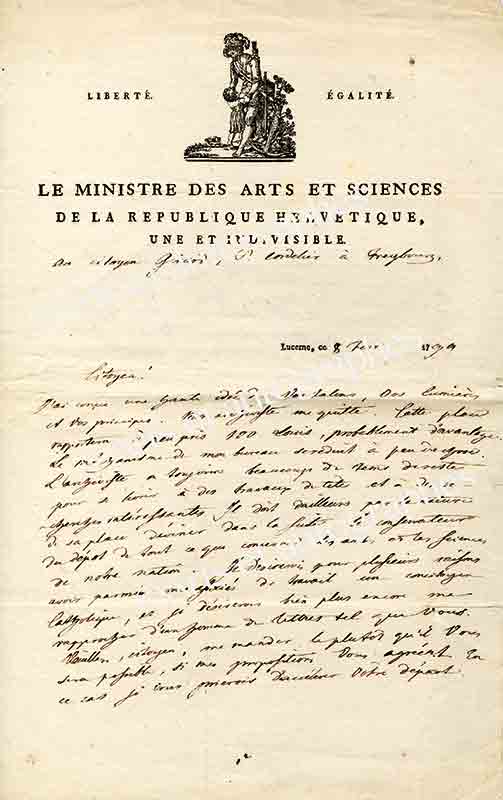 LIBERTÉ. ÉGALITÉ.
LE MINISTRE DES ARTS ET SCIENCES
DE LA REPUBLIQUE HELVETIQUE,
UNE ET INDIVISIBLE.
Au citoyen Girard, Cordelier à Freybourg,
Lucerne, ce 8 1799
Citoyen!
J'ai conçu une haute idée de Vos talens, Vos lumières
et Vos principes. Mon archiviste me quitte. Cette place
rapportera à peu près 100 Louis, probablement d'avantage.
Le méchanisme de mon bureau se réduit à peu de chose.
L'archiviste a toujours beaucoup de tems de reste
pour se livrer à des travaux de tête et à des
recherches intéressantes. Il doit d'ailleurs par la nature
de sa place devenir dans la suite le conservateur
du dépôt de tout ce qui concerne les arts et les sciences
de notre nation. Je désirerois pour plusieurs raisons
avoir parmi mes de travail un concitoyen
Catholique, et je désirerois bien plus encore me
rapprocher d'un homme de lettres tel que Vous.
Veuillez, citoyen, me mander le plutôt qu'il Vous
sera possible, si mes propositions Vous agréent. En
ce cas je Vous prierois d'accélérer Votre départ.